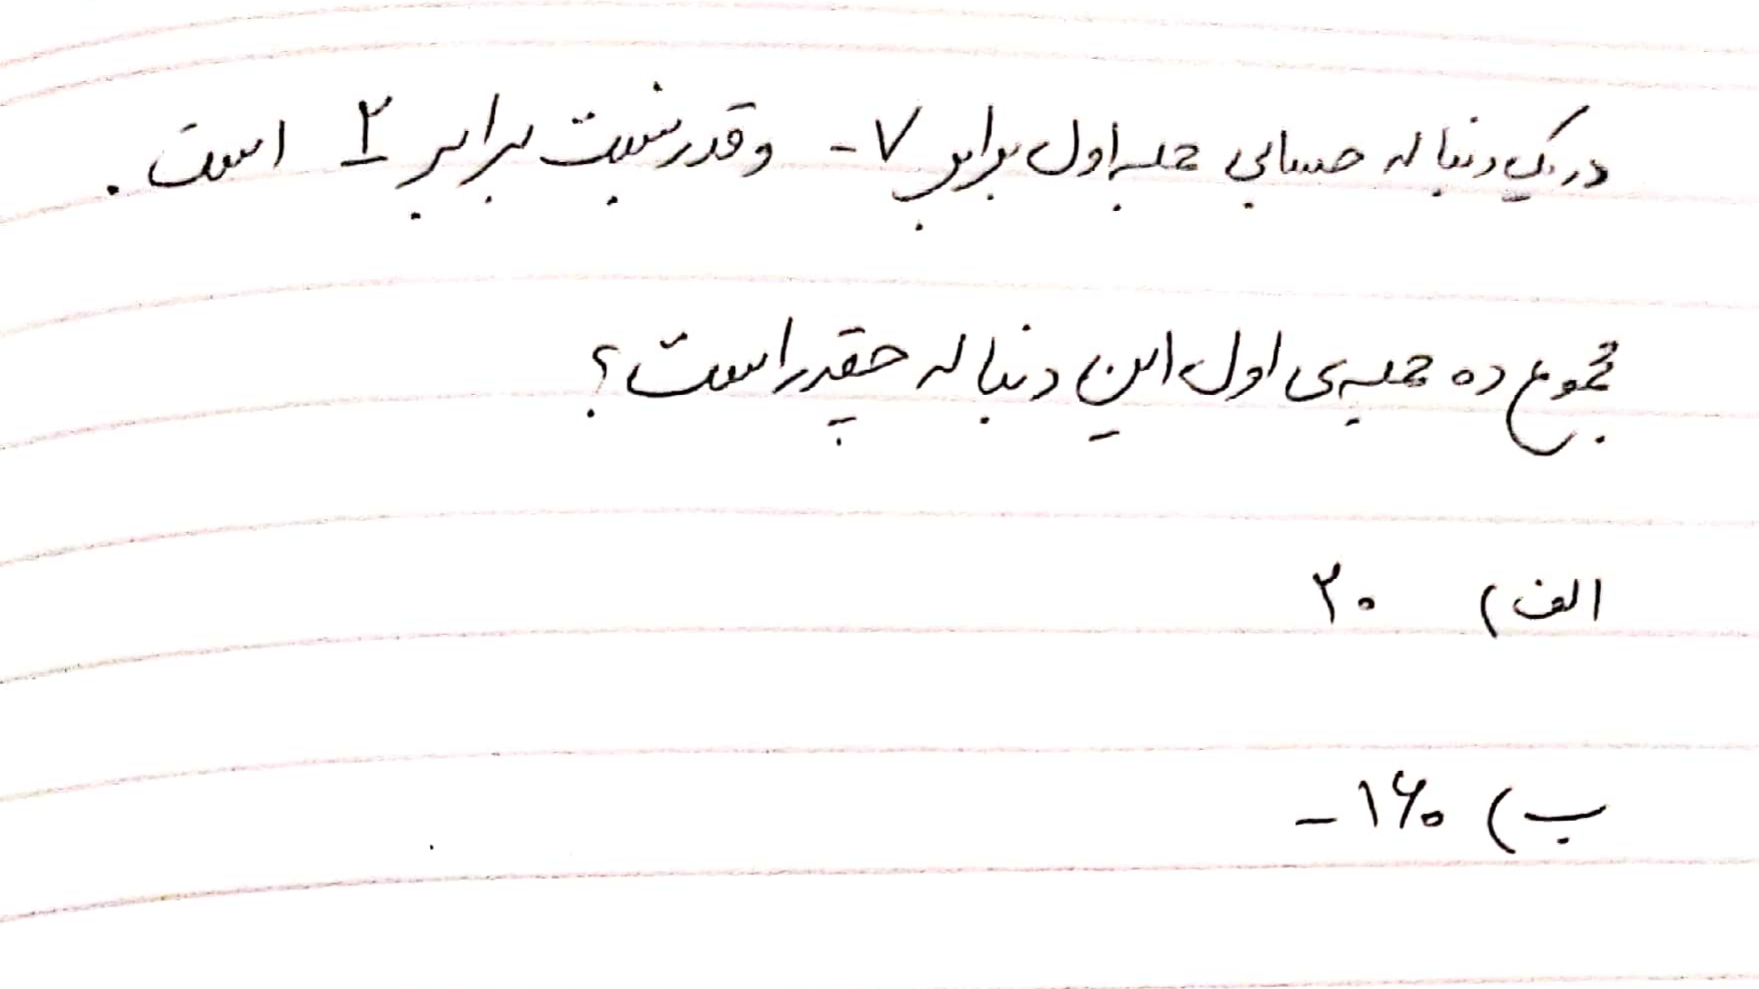 در یک دنباله حسابی جمله اول برابر ۷- و قدر نسبت برابر ۲ است .
مجموع ده جمله‌ی اول این دنباله چقدر است ؟
الف) ۲۰
ب) ۱۶۰-